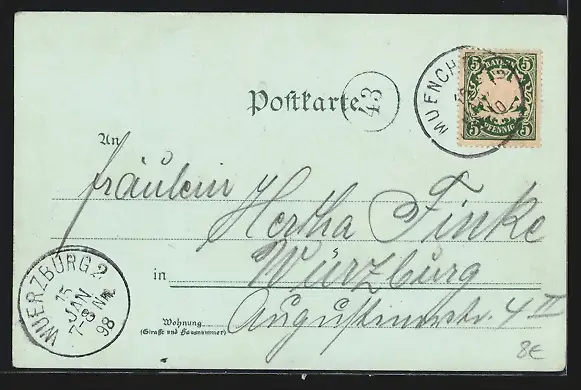 Postkarte
43
MUENCH
5 BAYERN 5
5 PFENNIG 5
An
Fräulein
Hertha Finke
in Würzburg
Augustinerstr. 4 II
Wohnung
(Straße und Hausnummer)
WUERZBURG 2
15
JAN
7-8 NM
98
8€